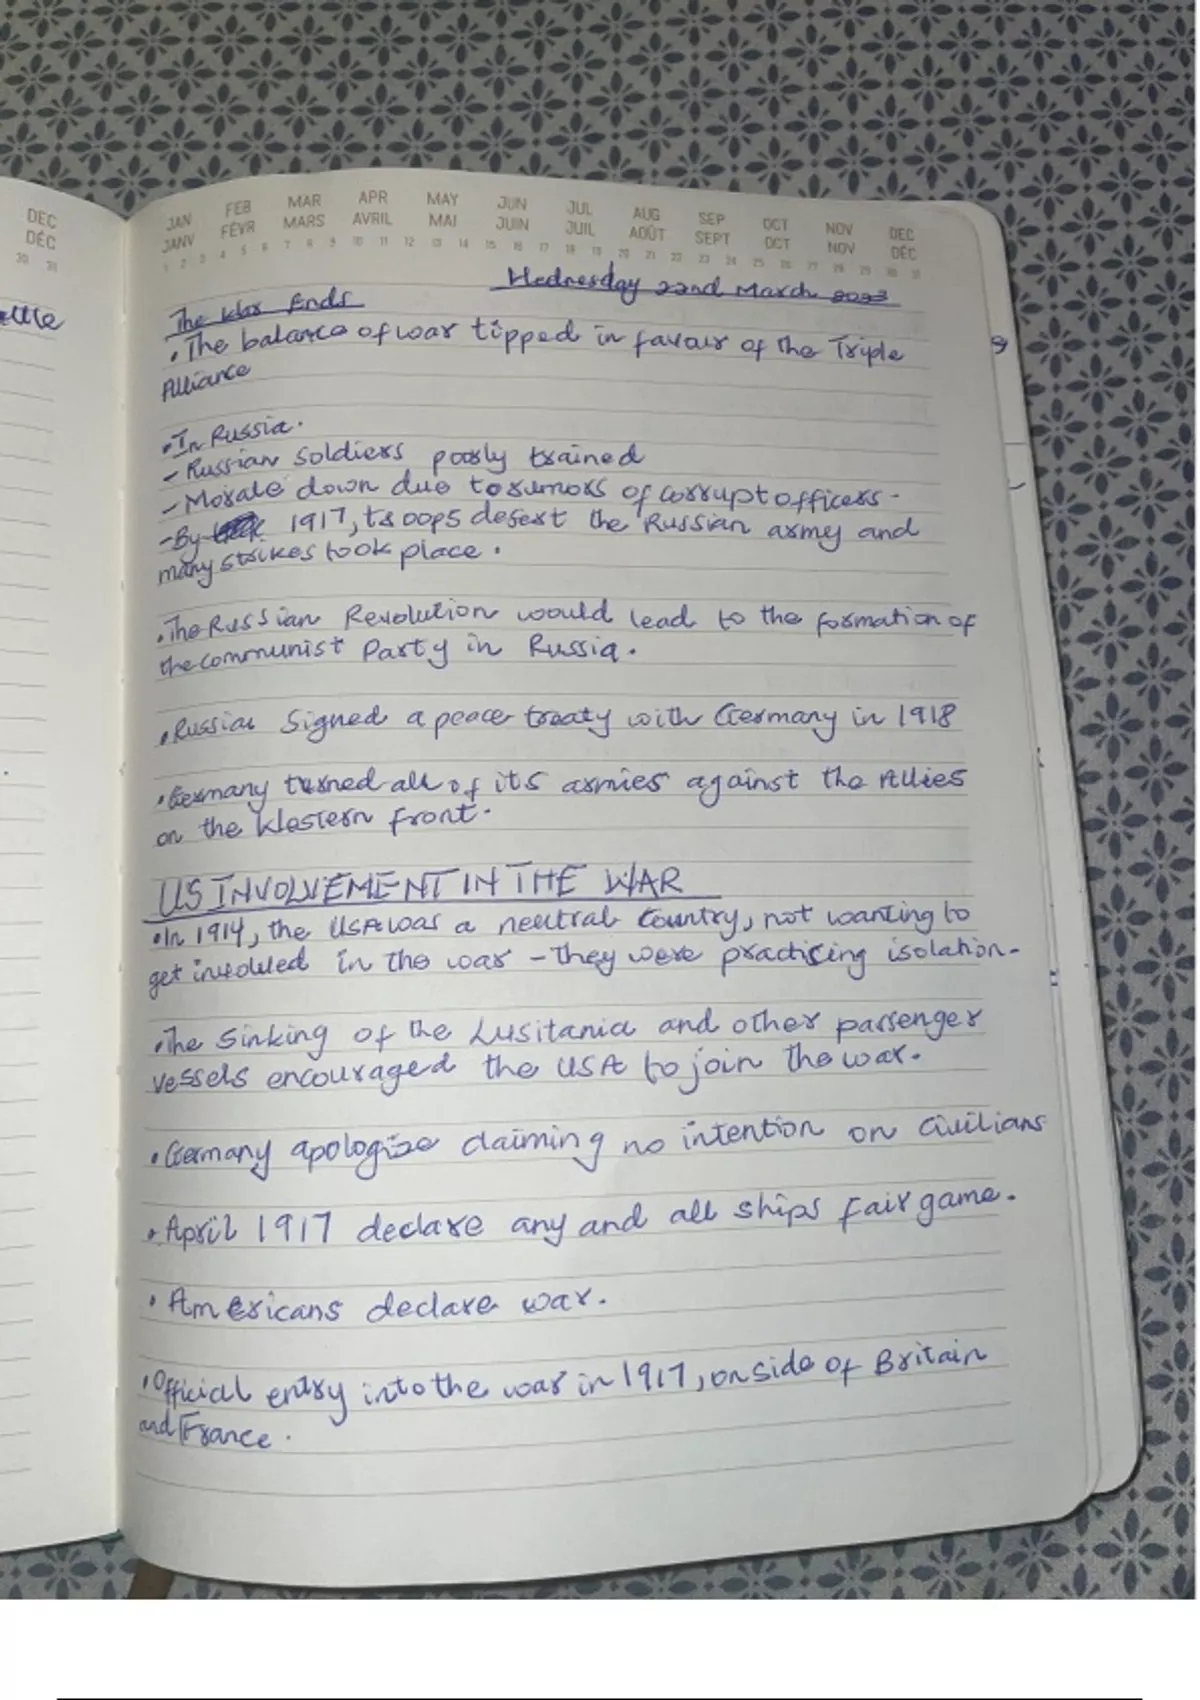 DEC
DÉC
30 31
JAN FEB MAR APR MAY JUN JUL AUG SEP OCT NOV DEC
JANV FÉVR MARS AVRIL MAI JUIN JUIL AOÛT SEPT OCT NOV DÉC
1 2 3 4 5 6 7 8 9 10 11 12 13 14 15 16 17 18 19 20 21 22 23 24 25 26 27 28 29 30 31
Wednesday 22nd March 2023
The War Ends
• The balance of war tipped in favour of the Triple
Alliance
• In Russia.
- Russian Soldiers poorly trained
- Morale down due to rumors of corrupt officers -
- By 1917, troops desert the Russian army and
many strikes took place.
• The Russian Revolution would lead to the formation of
the communist Party in Russia.
• Russia Signed a peace treaty with Germany in 1918
• Germany turned all of its armies against the Allies
on the Western front.
US INVOLVEMENT IN THE WAR
• In 1914, the USA was a neutral Country, not wanting to
get involved in the war - they were practicing isolation-
• The Sinking of the Lusitania and other passenger
vessels encouraged the USA to join the war.
• Germany apologize claiming no intention on Civilians
• April 1917 declare any and all ships fair game.
• Americans declare war.
• Official entry into the war in 1917, on side of Britain
and France.